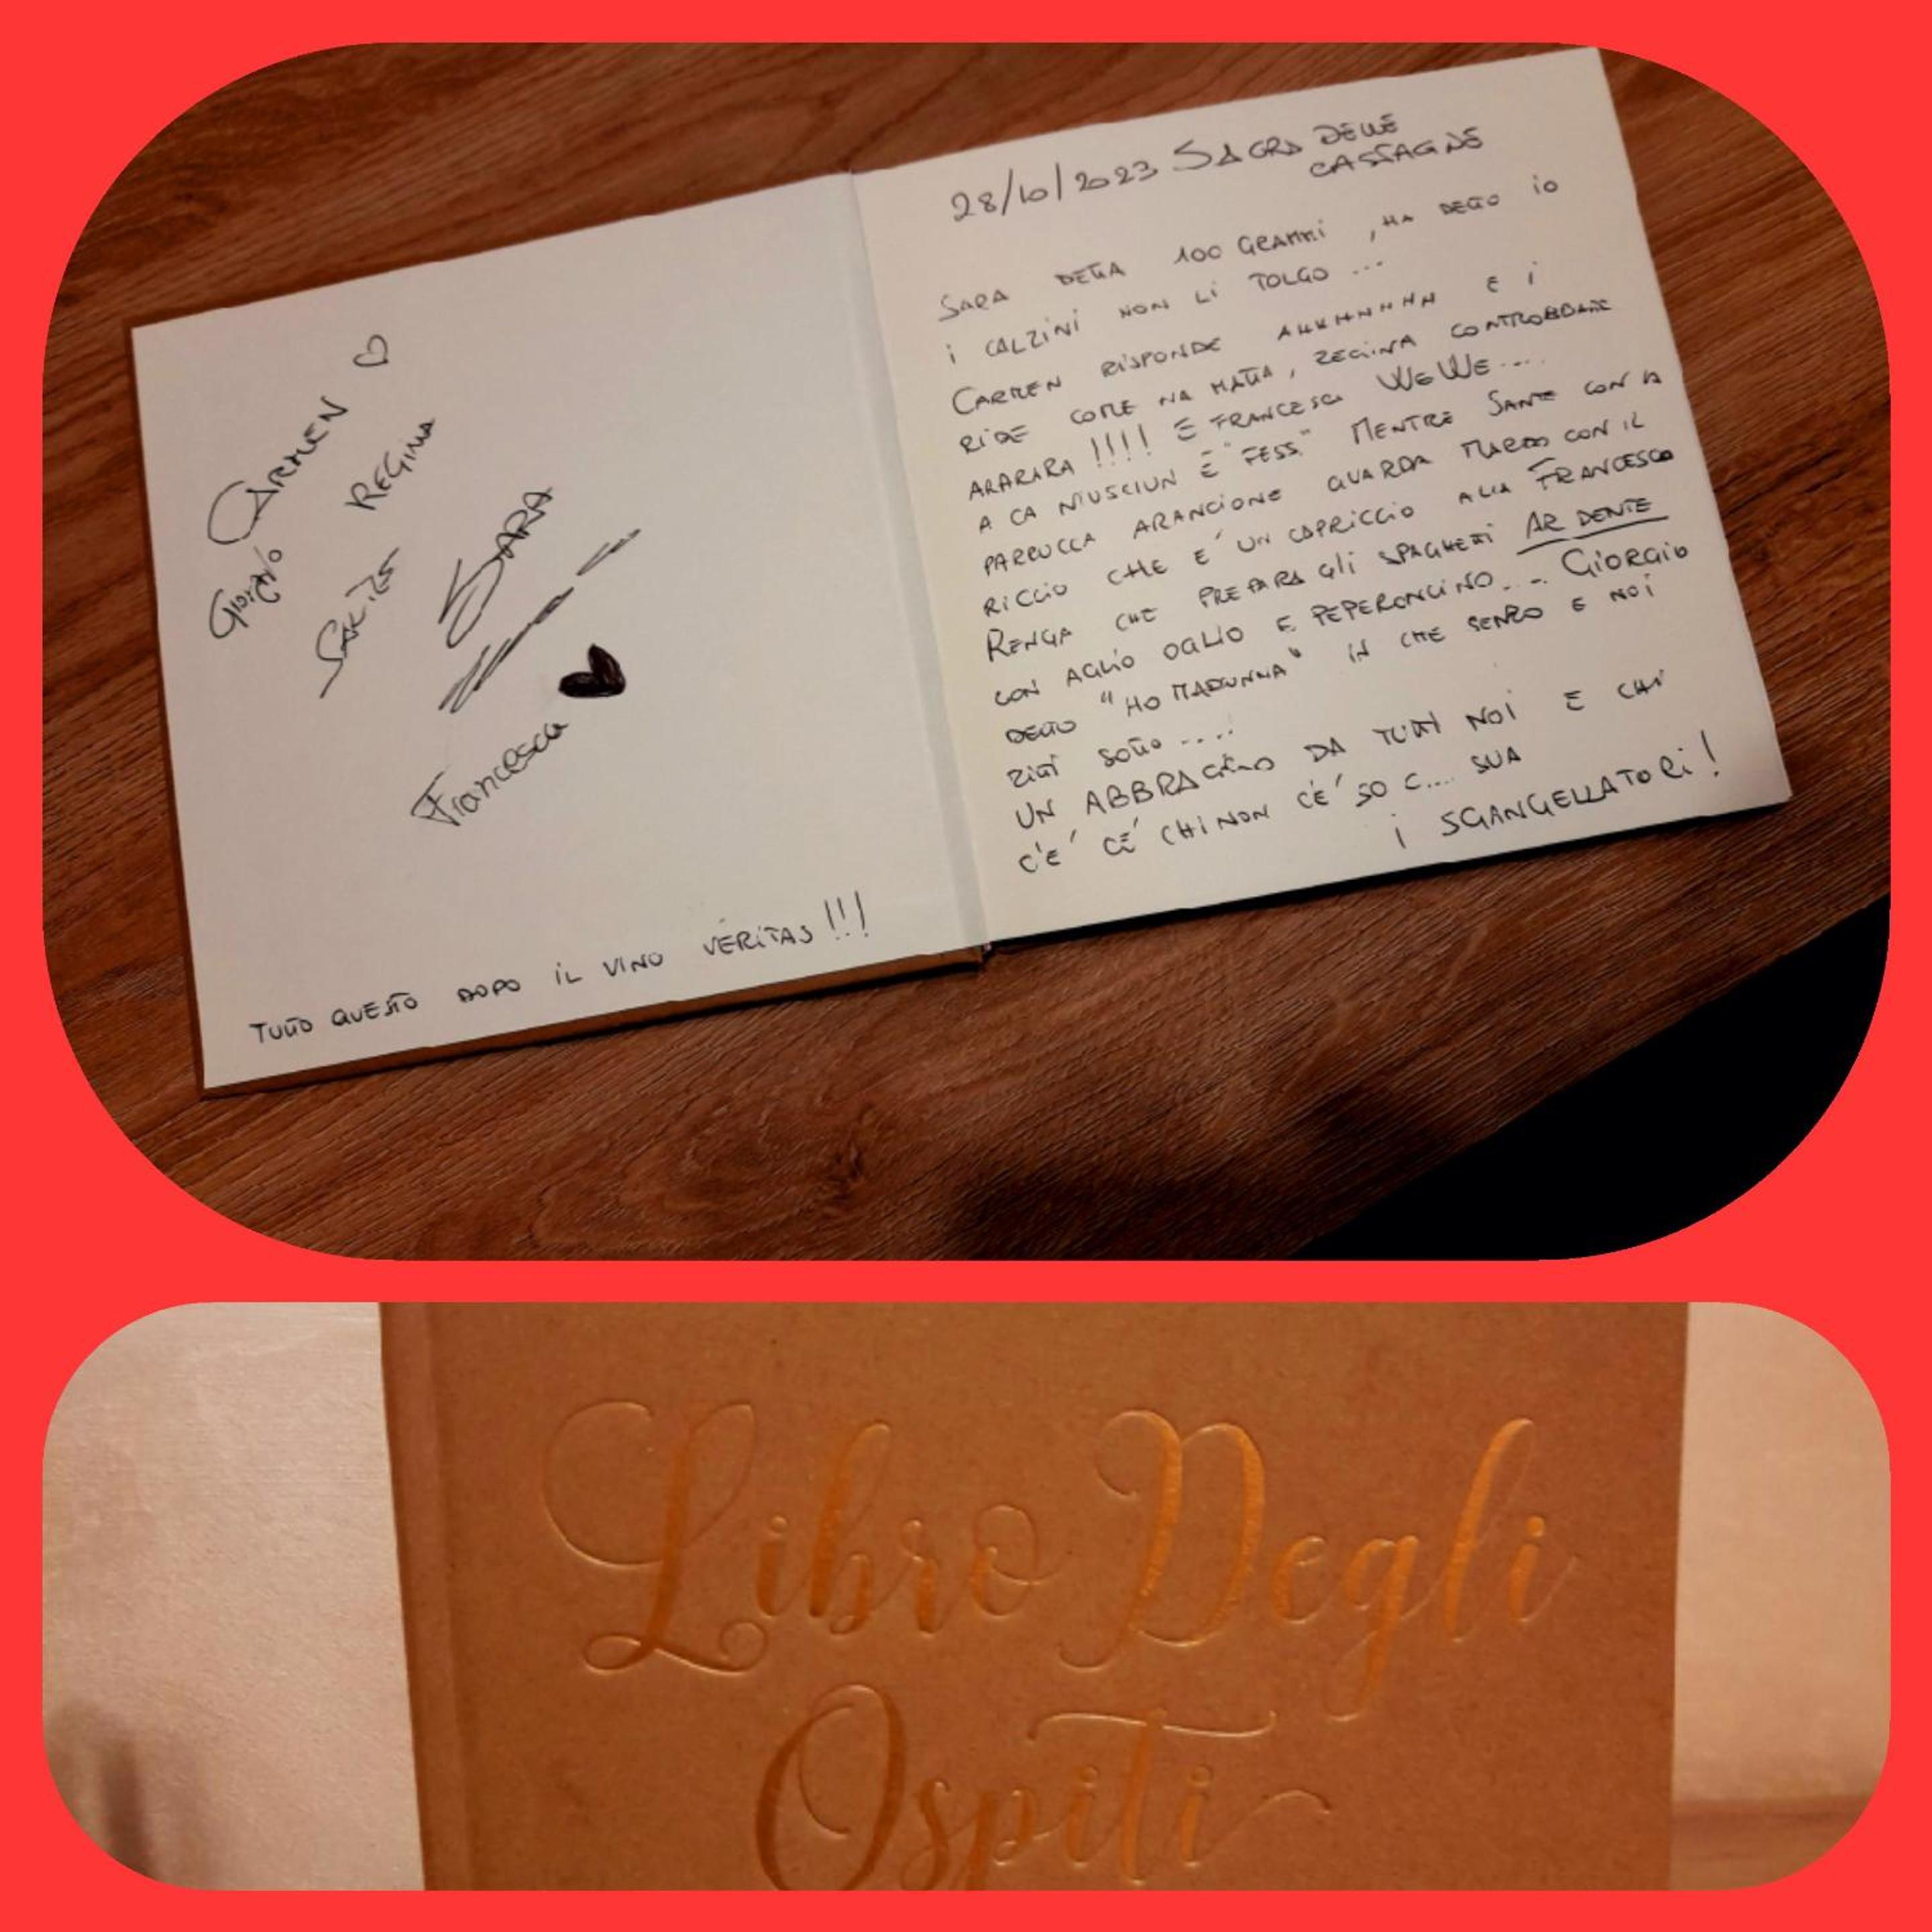 CARMEN
GIORGIO
REGINA
SANTE
SARA
Francesca
TUTTO QUESTO DOPO IL VINO VERITAS!!!
28/10/2023 SAGRA DELLE
CASTAGNE
SARA DETTA 100 GRAMMI, HA DETTO IO
I CALZINI NON LI TOLGO ...
CARMEN RISPONDE AHHHHHHH E I
RIDE COME NA MATTA, REGINA CONTROBBATTE
ARARARA !!!! E FRANCESCA WEWE....
A CA NIUSCIUN È "FESS" MENTRE SANTE CON LA
PARRUCCA ARANCIONE GUARDA MARCO CON IL
RICCIO CHE E' UN CAPRICCIO ALLA FRANCESCO
RENGA CHE PREPARA GLI SPAGHETTI AR DENTE
CON AGLIO OGLIO E PEPERONCINO... GIORGIO
DETTO "HO MADUNNA" IN CHE SENSO E NOI
TUTTI SOTTO ....
UN ABBRACCIO DA TUTTI NOI E CHI
C'E' CÈ CHI NON C'E' SO C.... SUA
I SGANGELLATORI!
Libro Degli
Ospiti